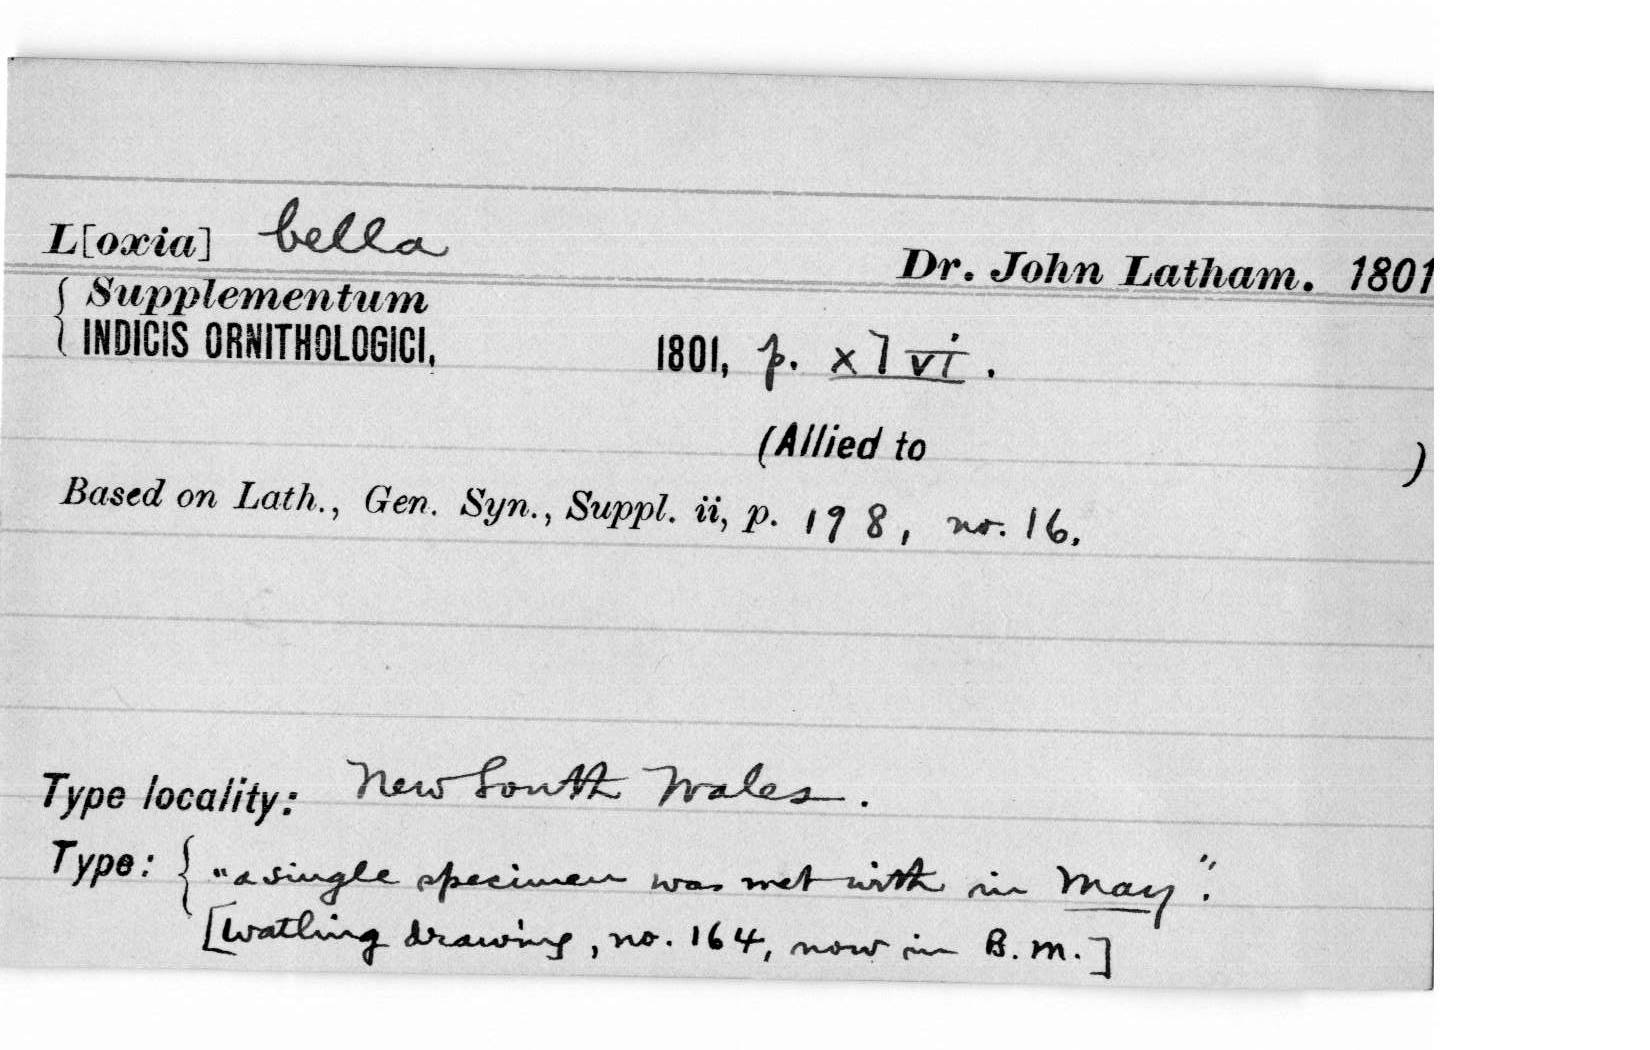 L[oxia] bella
Dr. John Latham. 1801
{ Supplementum
INDICIS ORNITHOLOGICI, 1801, p. xlvi.
(Allied to )
Based on Lath., Gen. Syn., Suppl. ii, p. 198, no. 16.
Type locality: New South Wales.
Type: { "a single specimen was met with in May".
[Watling drawing, no. 164, now in B.M.]